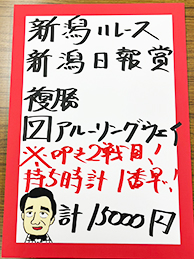 新潟11レース
新潟日報賞
複勝
7アルーリングウェイ
※叩き2戦目!
持5時計1番早!!
計15000円